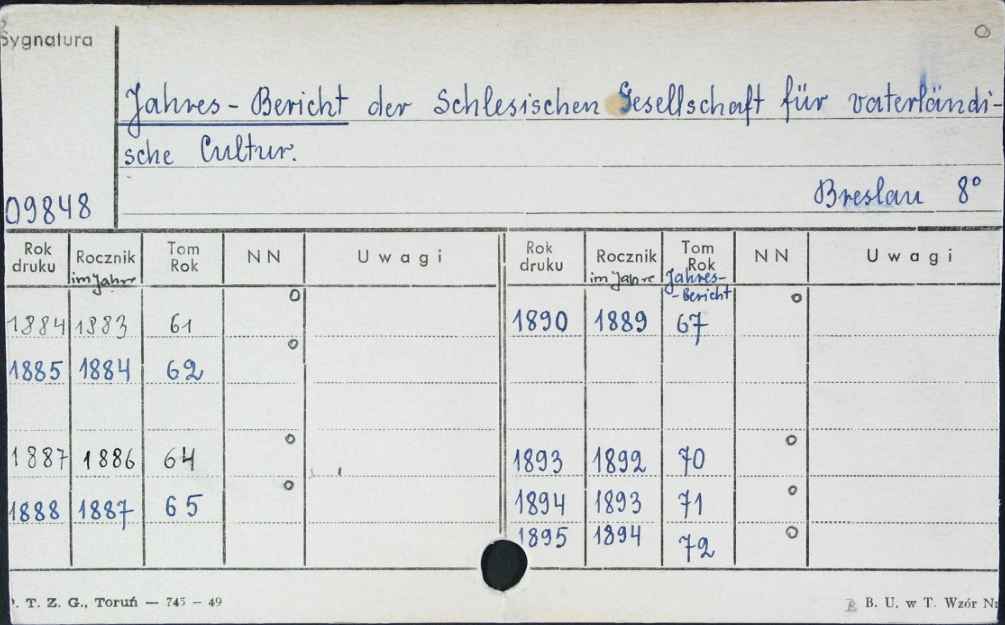 Sygnatura
Jahres-Bericht der Schlesischen Gesellschaft für vaterländi-
sche Cultur.
09848
Breslau 8°
Rok druku Rocznik im Jahre Tom Rok NN Uwagi Rok druku Rocznik im Jahre Tom Rok Jahres-Bericht NN Uwagi
1884 1883 61 1890 1889 67
1885 1884 62
1887 1886 64 1893 1892 70
1888 1887 65 1894 1893 71
1895 1894 72
. T. Z. G., Toruń — 745 – 49 B. U. w T. Wzór Nr